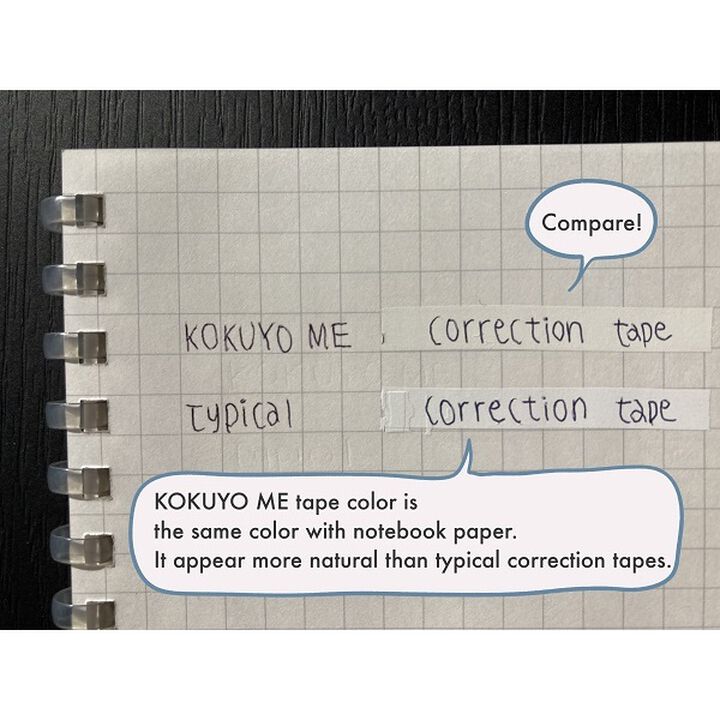 Compare!
KOKUYO ME correction tape
typical correction tape
KOKUYO ME tape color is
the same color with notebook paper.
It appear more natural than typical correction tapes.